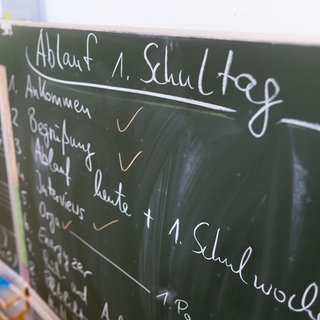 Ablauf 1. Schultag
1. Ankommen ✓
2. Begrüßung ✓
3. Ablauf heute + 1. Schulwoche
Interviews ✓
Orga ✓
Energyzer
und
1. Pa